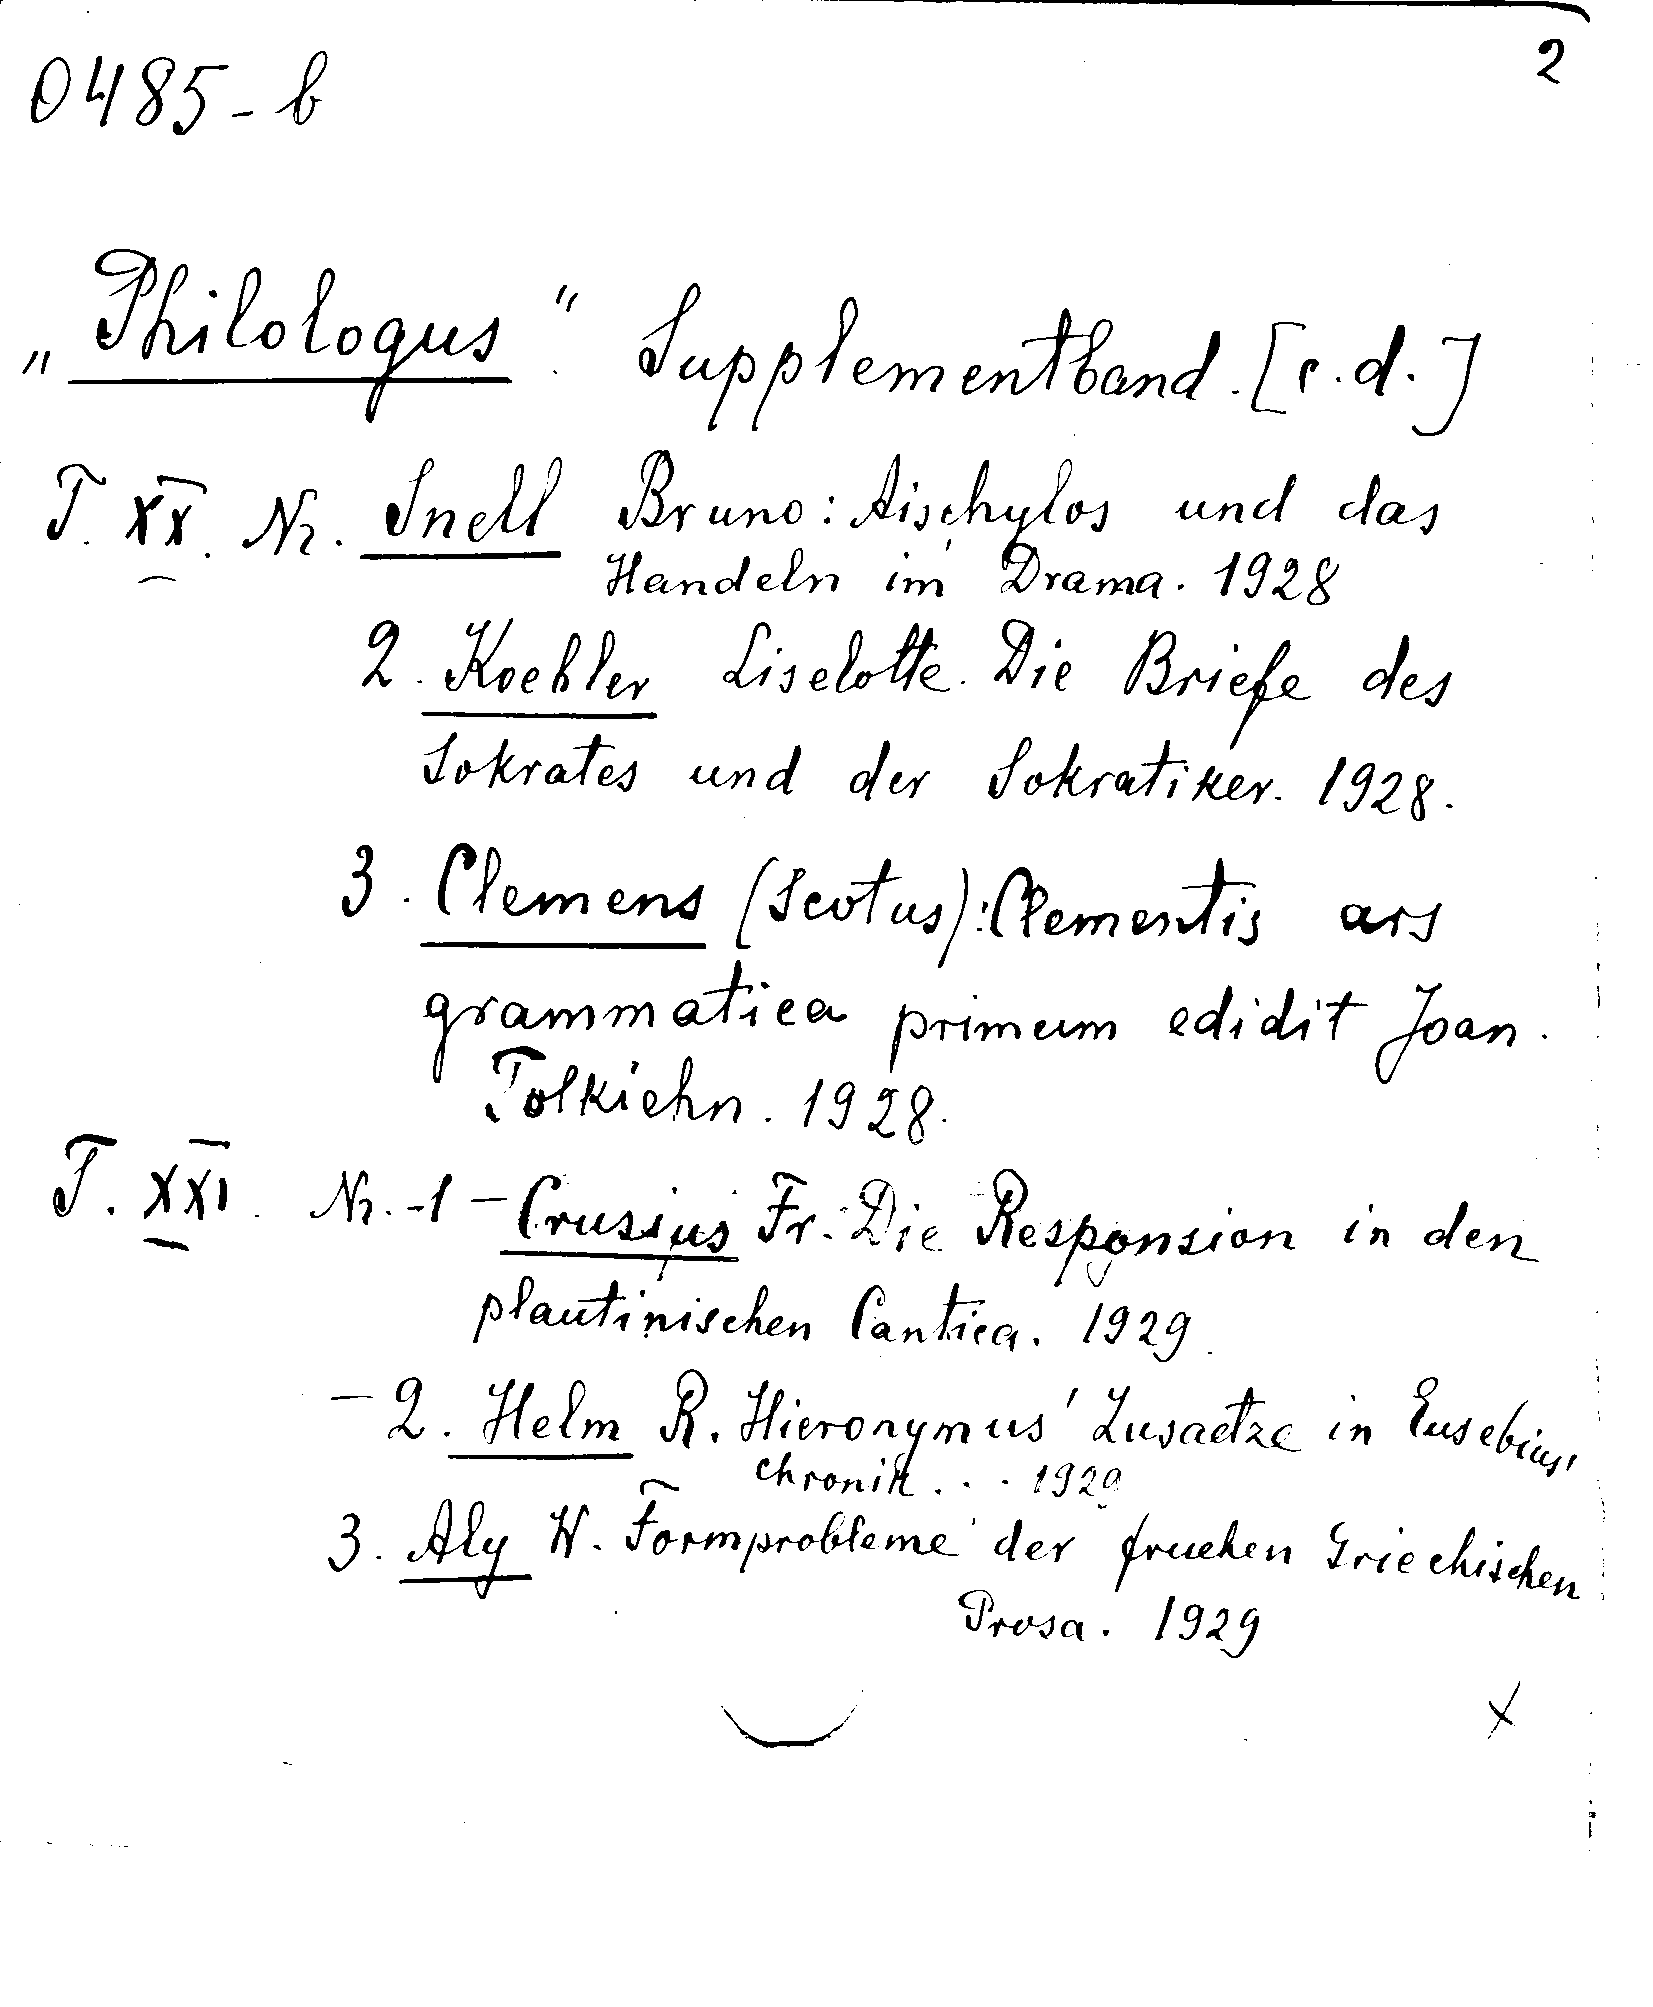 2
0485-b
„Philologus". Supplementband. [c.d.]
T. XX. Nr. Snell Bruno: Aischylos und das
Handeln im Drama. 1928
2. Koehler Liselotte. Die Briefe des
Sokrates und der Sokratiker. 1928.
3. Clemens (Scotus): Clementis ars
grammatica primum edidit Joan.
Tolkiehn. 1928.
T. XXI. Nr. -1 - Crusius Fr. Die Responsion in den
plautinischen Cantica. 1929.
- 2. Helm R. Hieronymus' Zusaetze in Eusebius'
chronik . . . 1929
3. Aly W. Formprobleme der fruehen Griechischen
Prosa. 1929
x